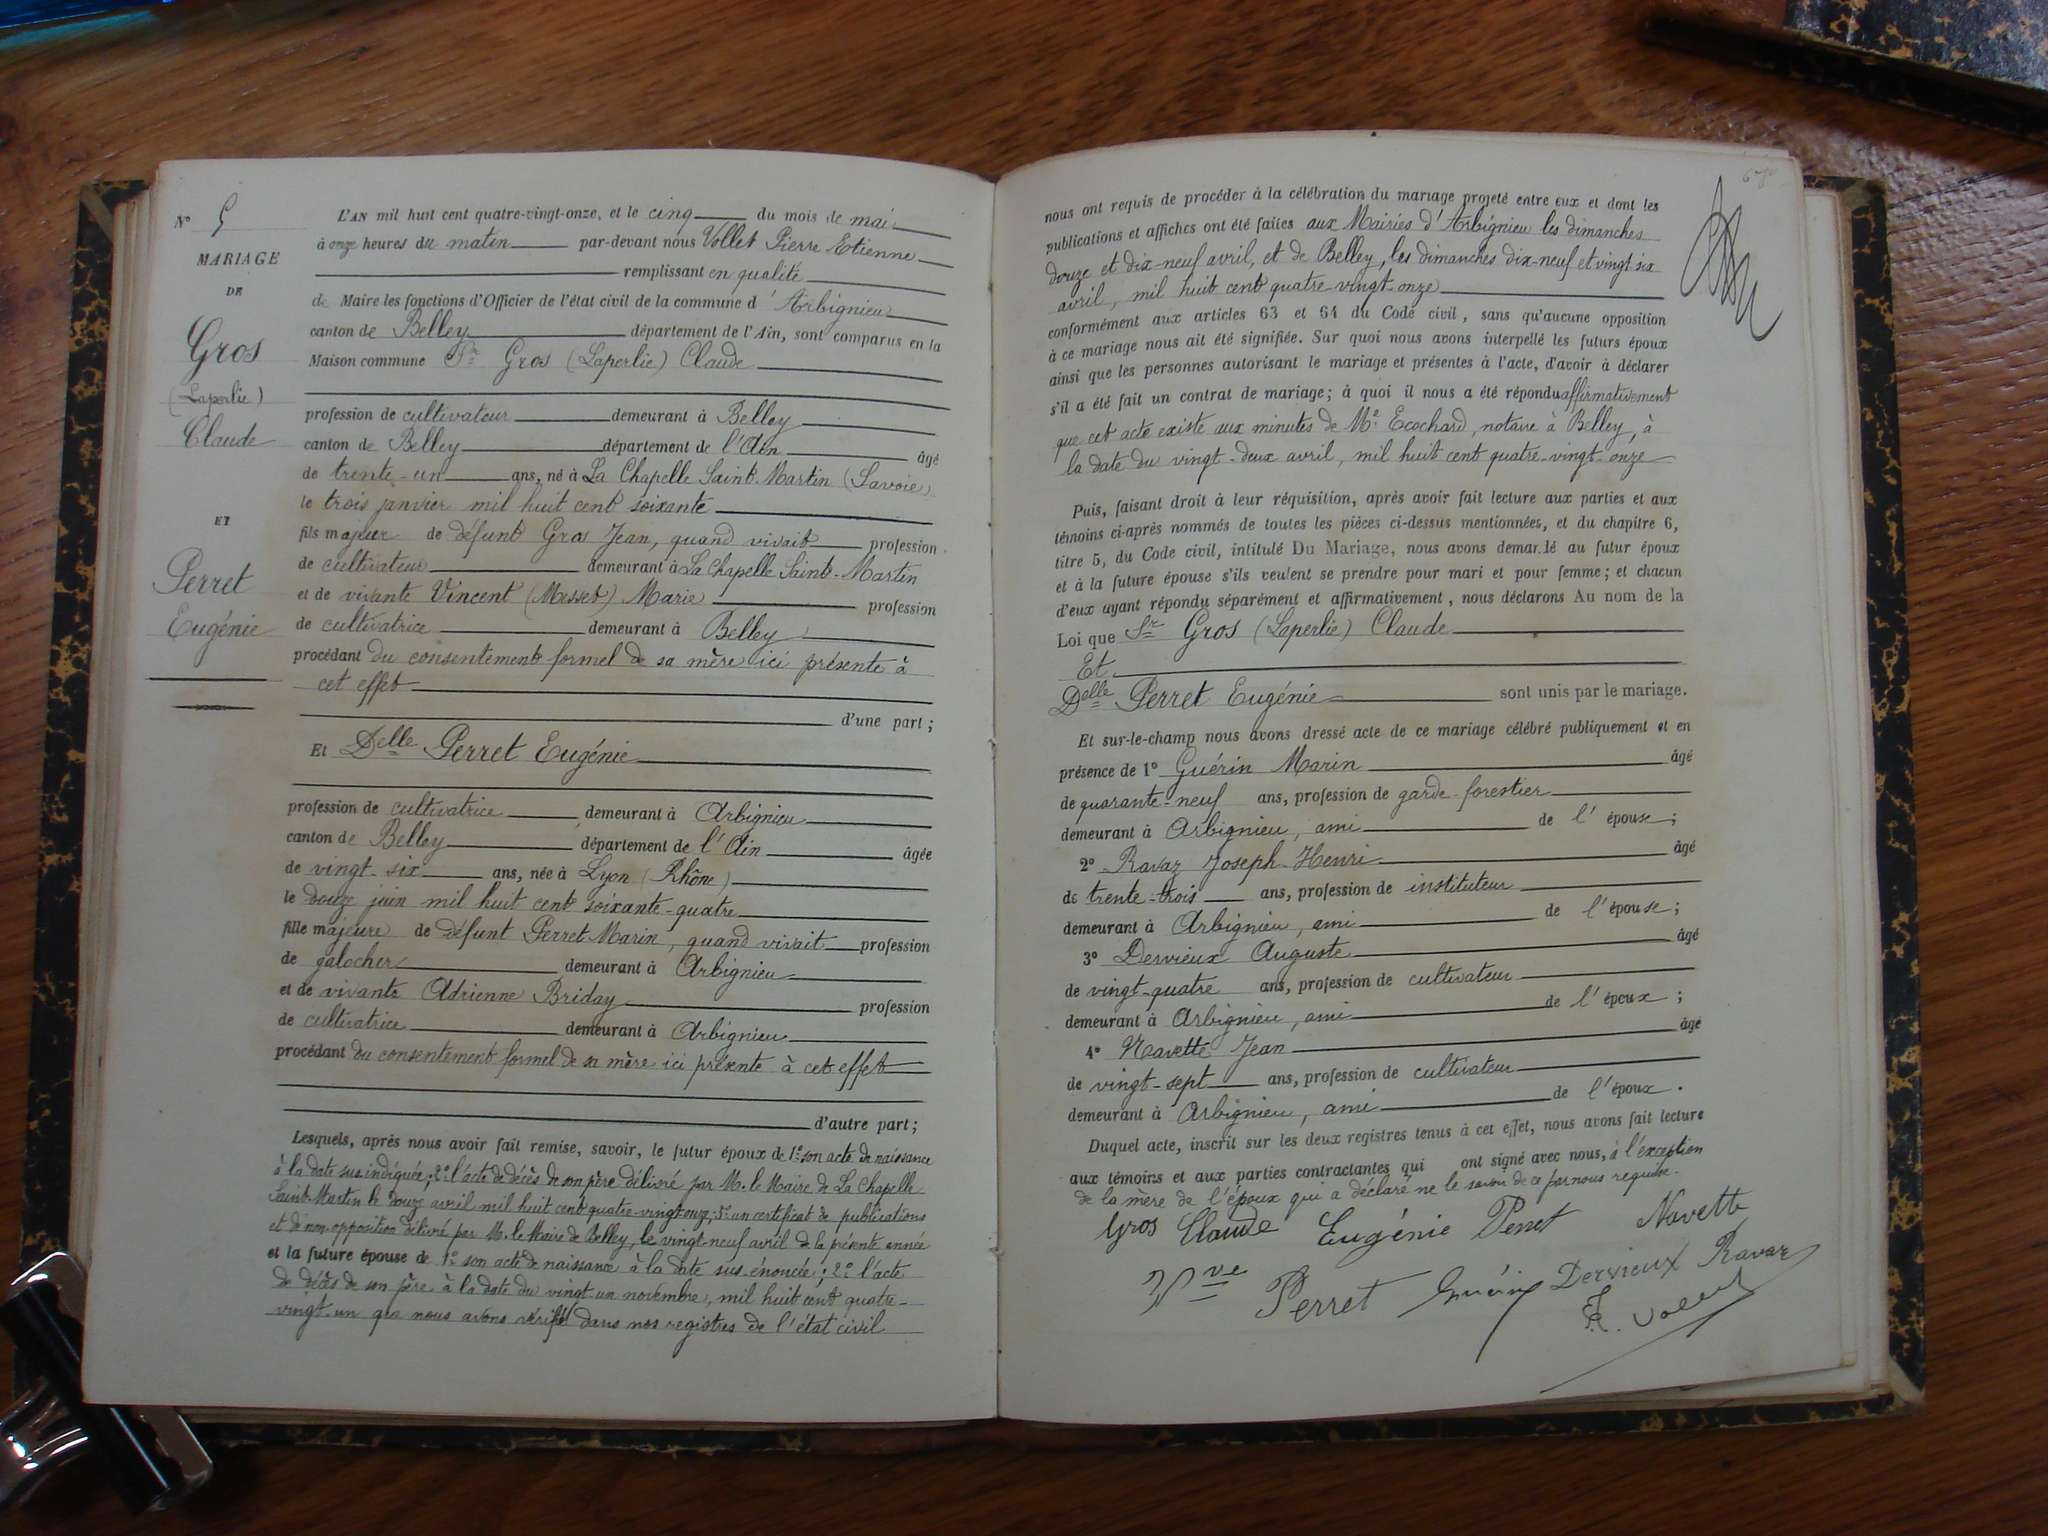 N° 5
MARIAGE
DE
Gros
(Laperlie)
Claude
ET
Perret
Eugénie
L'AN mil huit cent quatre-vingt-onze, et le cinq du mois de mai
à onze heures du matin par-devant nous Vollet Pierre Etienne
remplissant en qualité
de Maire les fonctions d'Officier de l'état civil de la commune d'Arbignieu
canton de Belley département de l'Ain, sont comparus en la
Maison commune Sr Gros (Laperlie) Claude
profession de cultivateur demeurant à Belley
canton de Belley département de l'Ain âgé
de trente-un ans, né à La Chapelle Saint-Martin (Savoie)
le trois janvier mil huit cent soixante
fils majeur de défunt Gros Jean, quand vivait profession
de cultivateur demeurant à La Chapelle Saint-Martin
et de vivante Vincent (Messet) Marie profession
de cultivatrice demeurant à Belley
procédant du consentement formel de sa mère ici présente à
cet effet
d'une part;
Et Delle Perret Eugénie
profession de cultivatrice demeurant à Arbignieu
canton de Belley département de l'Ain âgée
de vingt-six ans, née à Lyon (Rhône)
le douze juin mil huit cent soixante-quatre
fille majeure de défunt Perret Marin, quand vivait profession
de galocher demeurant à Arbignieu
et de vivante Adrienne Briday profession
de cultivatrice demeurant à Arbignieu
procédant du consentement formel de sa mère ici présente à cet effet
d'autre part;
Lesquels, après nous avoir fait remise, savoir, le futur époux de 1° son acte de naissance
à la date sus indiquée; 2° l'acte de décès de son père délivré par M. le Maire de La Chapelle
Saint-Martin le douze avril mil huit cent quatre-vingt-onze; 3° un certificat de publications
et de non-opposition délivré par M. le Maire de Belley, le vingt-neuf avril de la présente année
et la future épouse de 1° son acte de naissance à la date sus énoncée; 2° l'acte
de décès de son père à la date du vingt-un novembre, mil huit cent quatre-
vingt-un que nous avons vérifié dans nos registres de l'état civil
nous ont requis de procéder à la célébration du mariage projeté entre eux et dont les
publications et affiches ont été faites aux Mairies d'Arbignieu les dimanches
douze et dix-neuf avril, et de Belley, les dimanches dix-neuf et vingt-six
avril, mil huit cent quatre-vingt-onze
conformément aux articles 63 et 64 du Code civil, sans qu'aucune opposition
à ce mariage nous ait été signifiée. Sur quoi nous avons interpellé les futurs époux
ainsi que les personnes autorisant le mariage et présentes à l'acte, d'avoir à déclarer
s'il a été fait un contrat de mariage; à quoi il nous a été répondu affirmativement
que cet acte existe aux minutes de Me Ecochard, notaire à Belley, à
la date du vingt-deux avril, mil huit cent quatre-vingt-onze
Puis, faisant droit à leur réquisition, après avoir fait lecture aux parties et aux
témoins ci-après nommés de toutes les pièces ci-dessus mentionnées, et du chapitre 6,
titre 5, du Code civil, intitulé Du Mariage, nous avons demandé au futur époux
et à la future épouse s'ils veulent se prendre pour mari et pour femme; et chacun
d'eux ayant répondu séparément et affirmativement, nous déclarons Au nom de la
Loi que Sr Gros (Laperlie) Claude
Et
Delle Perret Eugénie sont unis par le mariage.
Et sur-le-champ nous avons dressé acte de ce mariage célébré publiquement et en
présence de 1° Guérin Marin âgé
de quarante-neuf ans, profession de garde-forestier
demeurant à Arbignieu, ami de l'épouse;
2° Ravaz Joseph-Henri âgé
de trente-trois ans, profession de instituteur
demeurant à Arbignieu, ami de l'épouse;
3° Dervieux Auguste âgé
de vingt-quatre ans, profession de cultivateur
demeurant à Arbignieu, ami de l'époux;
4° Navette Jean âgé
de vingt-sept ans, profession de cultivateur
demeurant à Arbignieu, ami de l'époux.
Duquel acte, inscrit sur les deux registres tenus à cet effet, nous avons fait lecture
aux témoins et aux parties contractantes qui ont signé avec nous, à l'exception
de la mère de l'époux qui a déclaré ne le savoir de ce par nous requise.
Gros Claude Eugénie Perret Navette
Vve Perret Guérin Dervieux Ravaz
E. Vollet